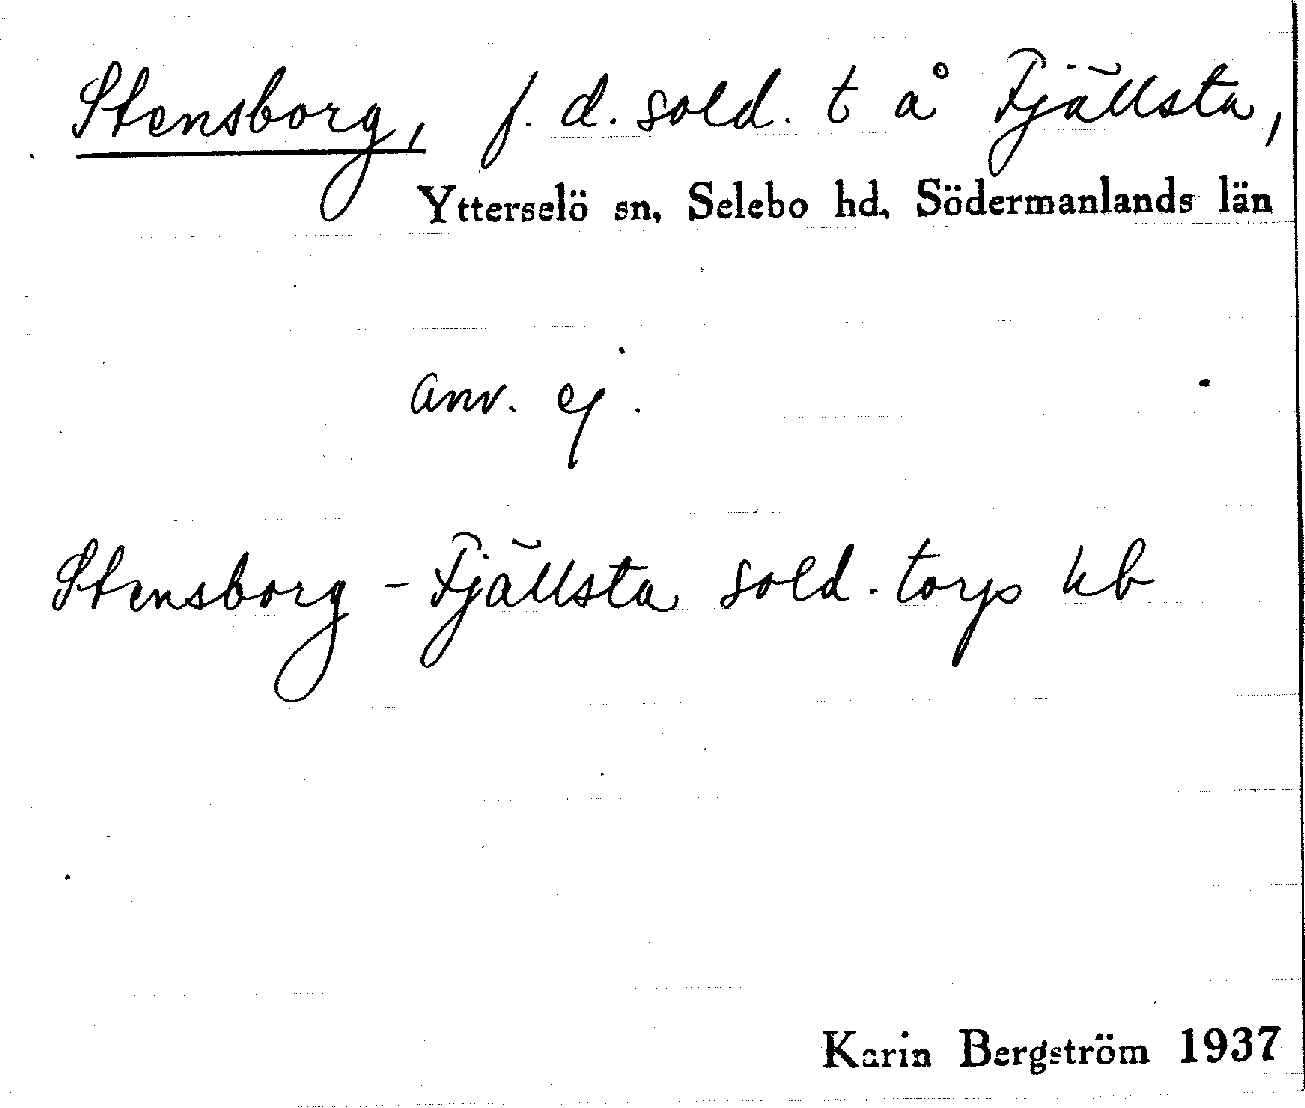 Stensborg, f. d. sold. t å Fjällsta,
Ytterselö sn, Selebo hd, Södermanlands län
anv. ej.
Stensborg - Fjällsta sold. torp kb
Karin Bergström 1937